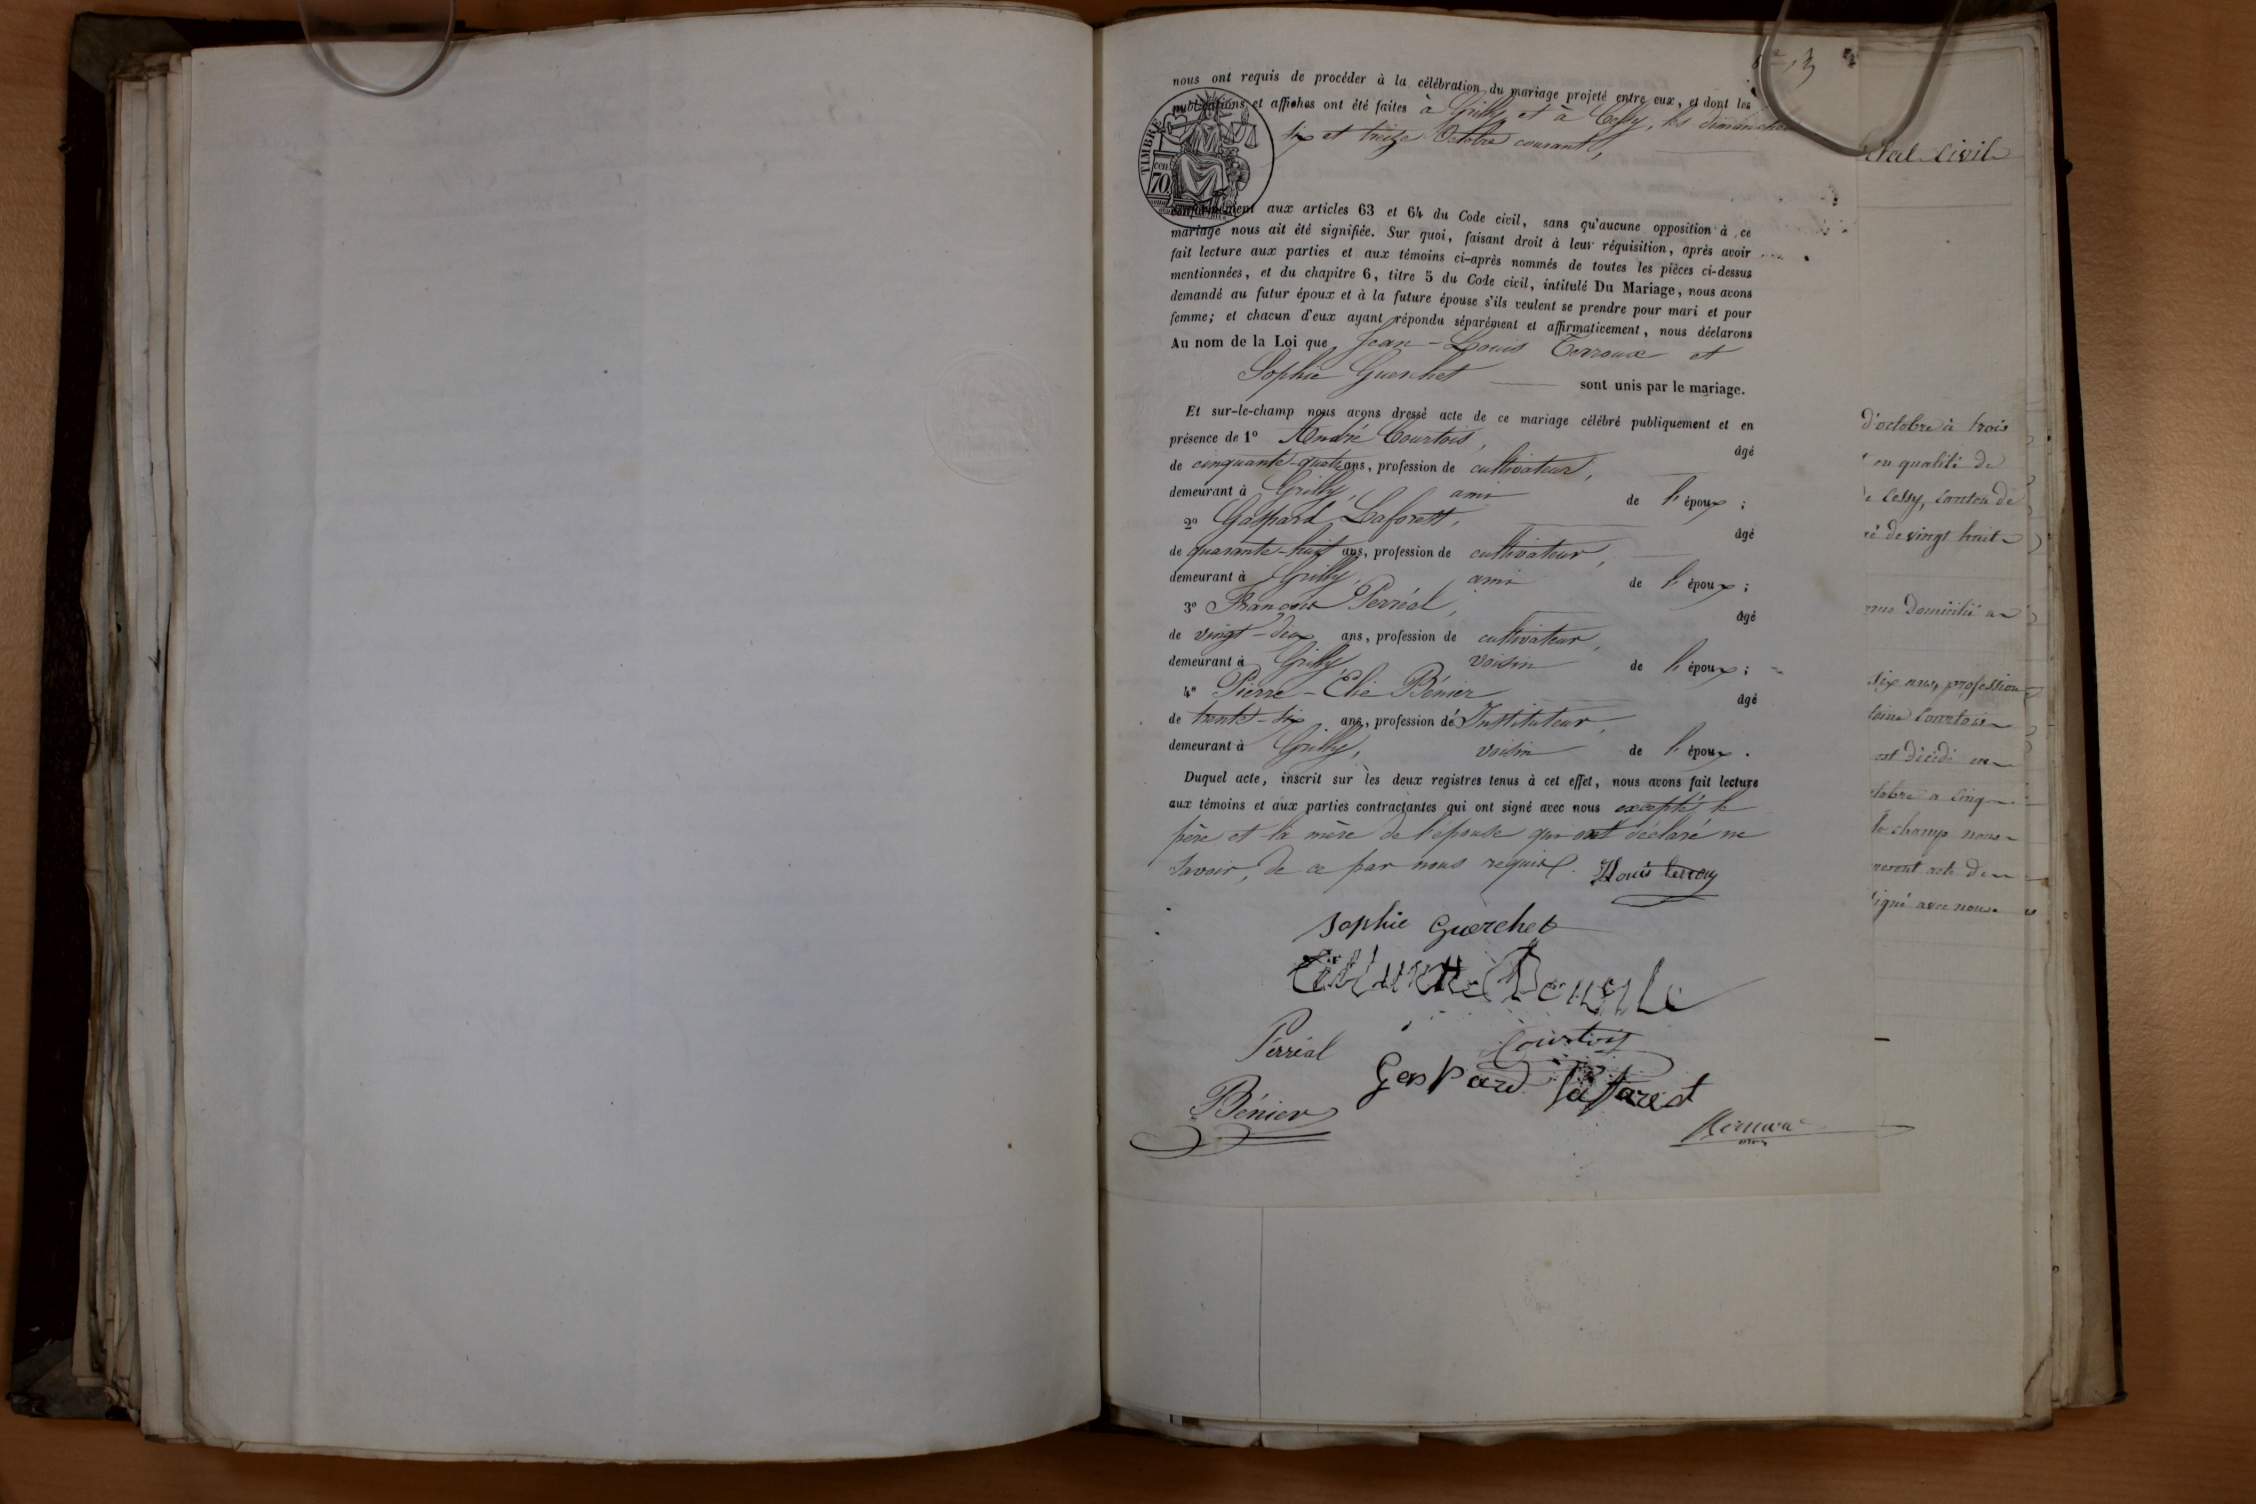 13
nous ont requis de procéder à la célébration du mariage projeté entre eux, et dont les
publications et affiches ont été faites à Grilly et à Cessy, les dimanches
six et treize Octobre courant,
TIMBRE
70
conformément aux articles 63 et 64 du Code civil, sans qu'aucune opposition à ce
mariage nous ait été signifiée. Sur quoi, faisant droit à leur réquisition, après avoir
fait lecture aux parties et aux témoins ci-après nommés de toutes les pièces ci-dessus
mentionnées, et du chapitre 6, titre 5 du Code civil, intitulé Du Mariage, nous avons
demandé au futur époux et à la future épouse s'ils veulent se prendre pour mari et pour
femme; et chacun d'eux ayant répondu séparément et affirmativement, nous déclarons
Au nom de la Loi que Jean-Louis Terroux et
Sophie Guerchet sont unis par le mariage.
Et sur-le-champ nous avons dressé acte de ce mariage célébré publiquement et en
présence de 1º André Courtois, âgé
de cinquante-quatre ans, profession de cultivateur,
demeurant à Grilly, ami de l'époux;
2º Gaspard Laforest, âgé
de quarante-huit ans, profession de cultivateur,
demeurant à Grilly, ami de l'époux;
3º François Perréal, âgé
de vingt-deux ans, profession de cultivateur,
demeurant à Grilly, voisin de l'époux;
4º Pierre-Élie Bénier âgé
de trente-six ans, profession de Instituteur,
demeurant à Grilly, voisin de l'époux.
Duquel acte, inscrit sur les deux registres tenus à cet effet, nous avons fait lecture
aux témoins et aux parties contractantes qui ont signé avec nous excepté le
père et la mère de l'épouse qui ont déclaré ne
savoir, de ce par nous requis. Louis terroux
Sophie Guerchet
Perréal
Courtois
Gaspard Laforest
Bénier
état civil
d'octobre à trois
en qualité de
Cessy, canton de
de vingt huit
domicilié a
six ans, profession
Courtois
est décédé en
octobre à cinq
le champ nous
acte de
signé avec nous